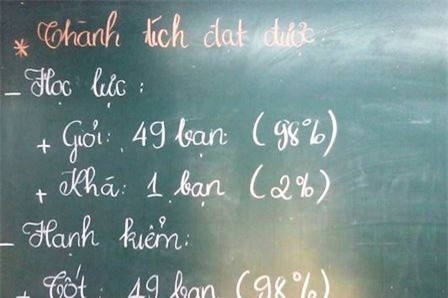 * Thành tích đạt được:
– Học lực:
+ Giỏi: 49 bạn (98%)
+ Khá: 1 bạn (2%)
– Hạnh kiểm:
+ Tốt: 49 bạn (98%)